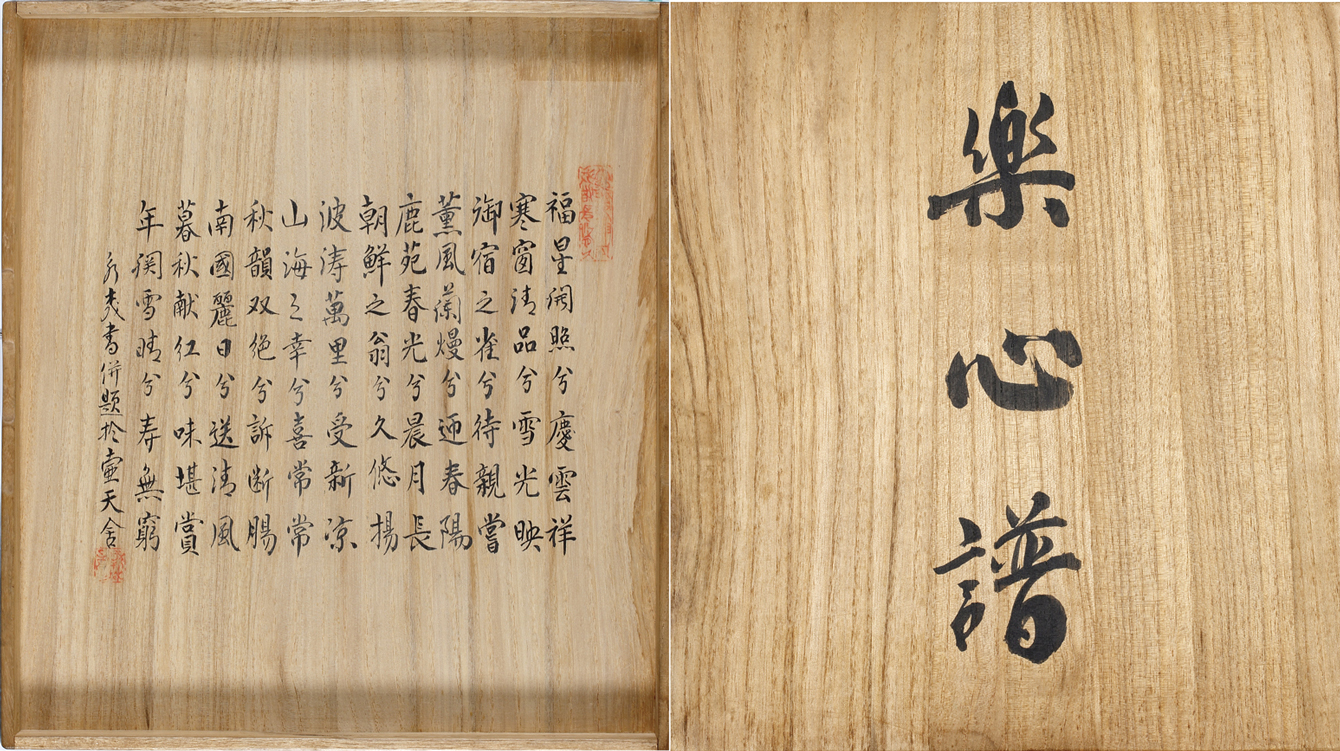 福星開照兮慶雲祥
寒窗清品兮雪光映
御宿之雀兮待親嘗
薰風蘭熳兮迎春陽
鹿苑春光兮晨月長
朝鮮之翁兮久悠揚
波涛萬里兮受新凉
山海之幸兮喜常常
秋韻双絶兮訴断腸
南國麗日兮送清風
暮秋献红兮味堪賞
年関雪晴兮寿無窮
書併題於壷天舍
樂心譜